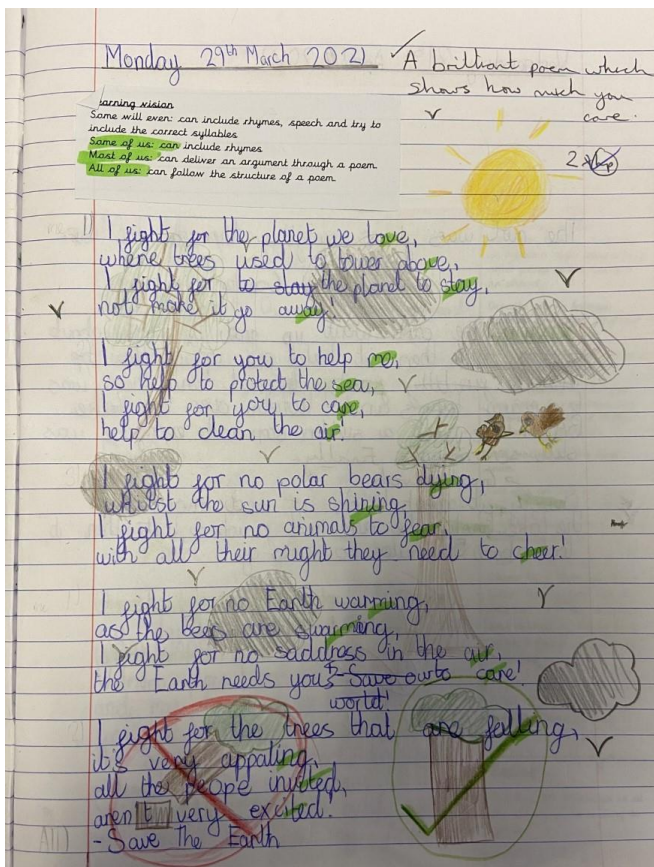 Monday 29th March 2021
A brilliant poem which
shows how much you
care.
arning vision
Some will even: can include rhymes, speech and try to
include the correct syllables
Some of us: can include rhymes
Most of us: can deliver an argument through a poem
All of us: can follow the structure of a poem
2
1) I fight for the planet we love,
where trees used to tower above,
I fight for to stay the planet to stay,
not make it go away!
I fight for you to help me,
so help to protect the sea,
I fight for you to care,
help to clean the air!
I fight for no polar bears dying,
whilst the sun is shining,
I fight for no animals to fear,
with all their might they need to cheer!
I fight for no Earth warming,
as the bees are swarming,
I fight for no saddness in the air,
the Earth needs you to care!
world!
I fight for the trees that are falling,
it's very appaling,
all the peope invited,
aren't very excited!
- Save The Earth